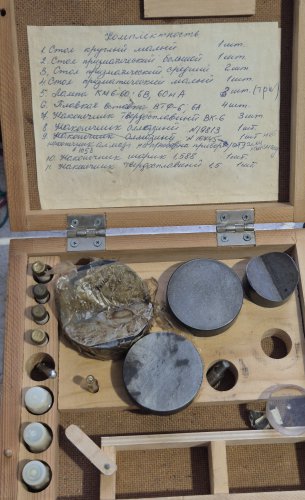 Комплектность
1. Стол круглый малый 1 шт.
2. Стол призматический большой 1 шт.
3. Стол призматический средний 2 шт.
4. Стол призматический малый 1 шт.
5. Лампа КМ6-60; 6В, 60мА 3 шт. (три)
6. Плавкая вставка ВТФ-6, 6А 4 шт.
7. Наконечник твердосплавный ВК-6 3 шт.
8. Наконечник алмазный N 19813 1 шт.
9. Наконечник алмазный
наконечник алмазн
10. Наконечник шарик 1,588 1 шт.
11. Наконечник твердосплав 1,5 1 шт.